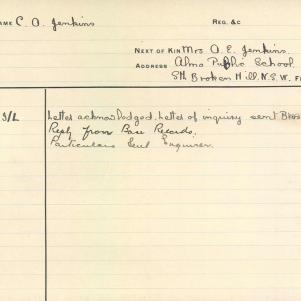 NAME C. A. Jenkins REG. &C
NEXT OF KIN Mrs A. E. Jenkins.
ADDRESS Alma Public School
Sth Broken Hill. N.S.W.
S/L Letter acknowledged. Letter of inquiry sent
Reply from Base Records.
Particulars Sent Enquirer.